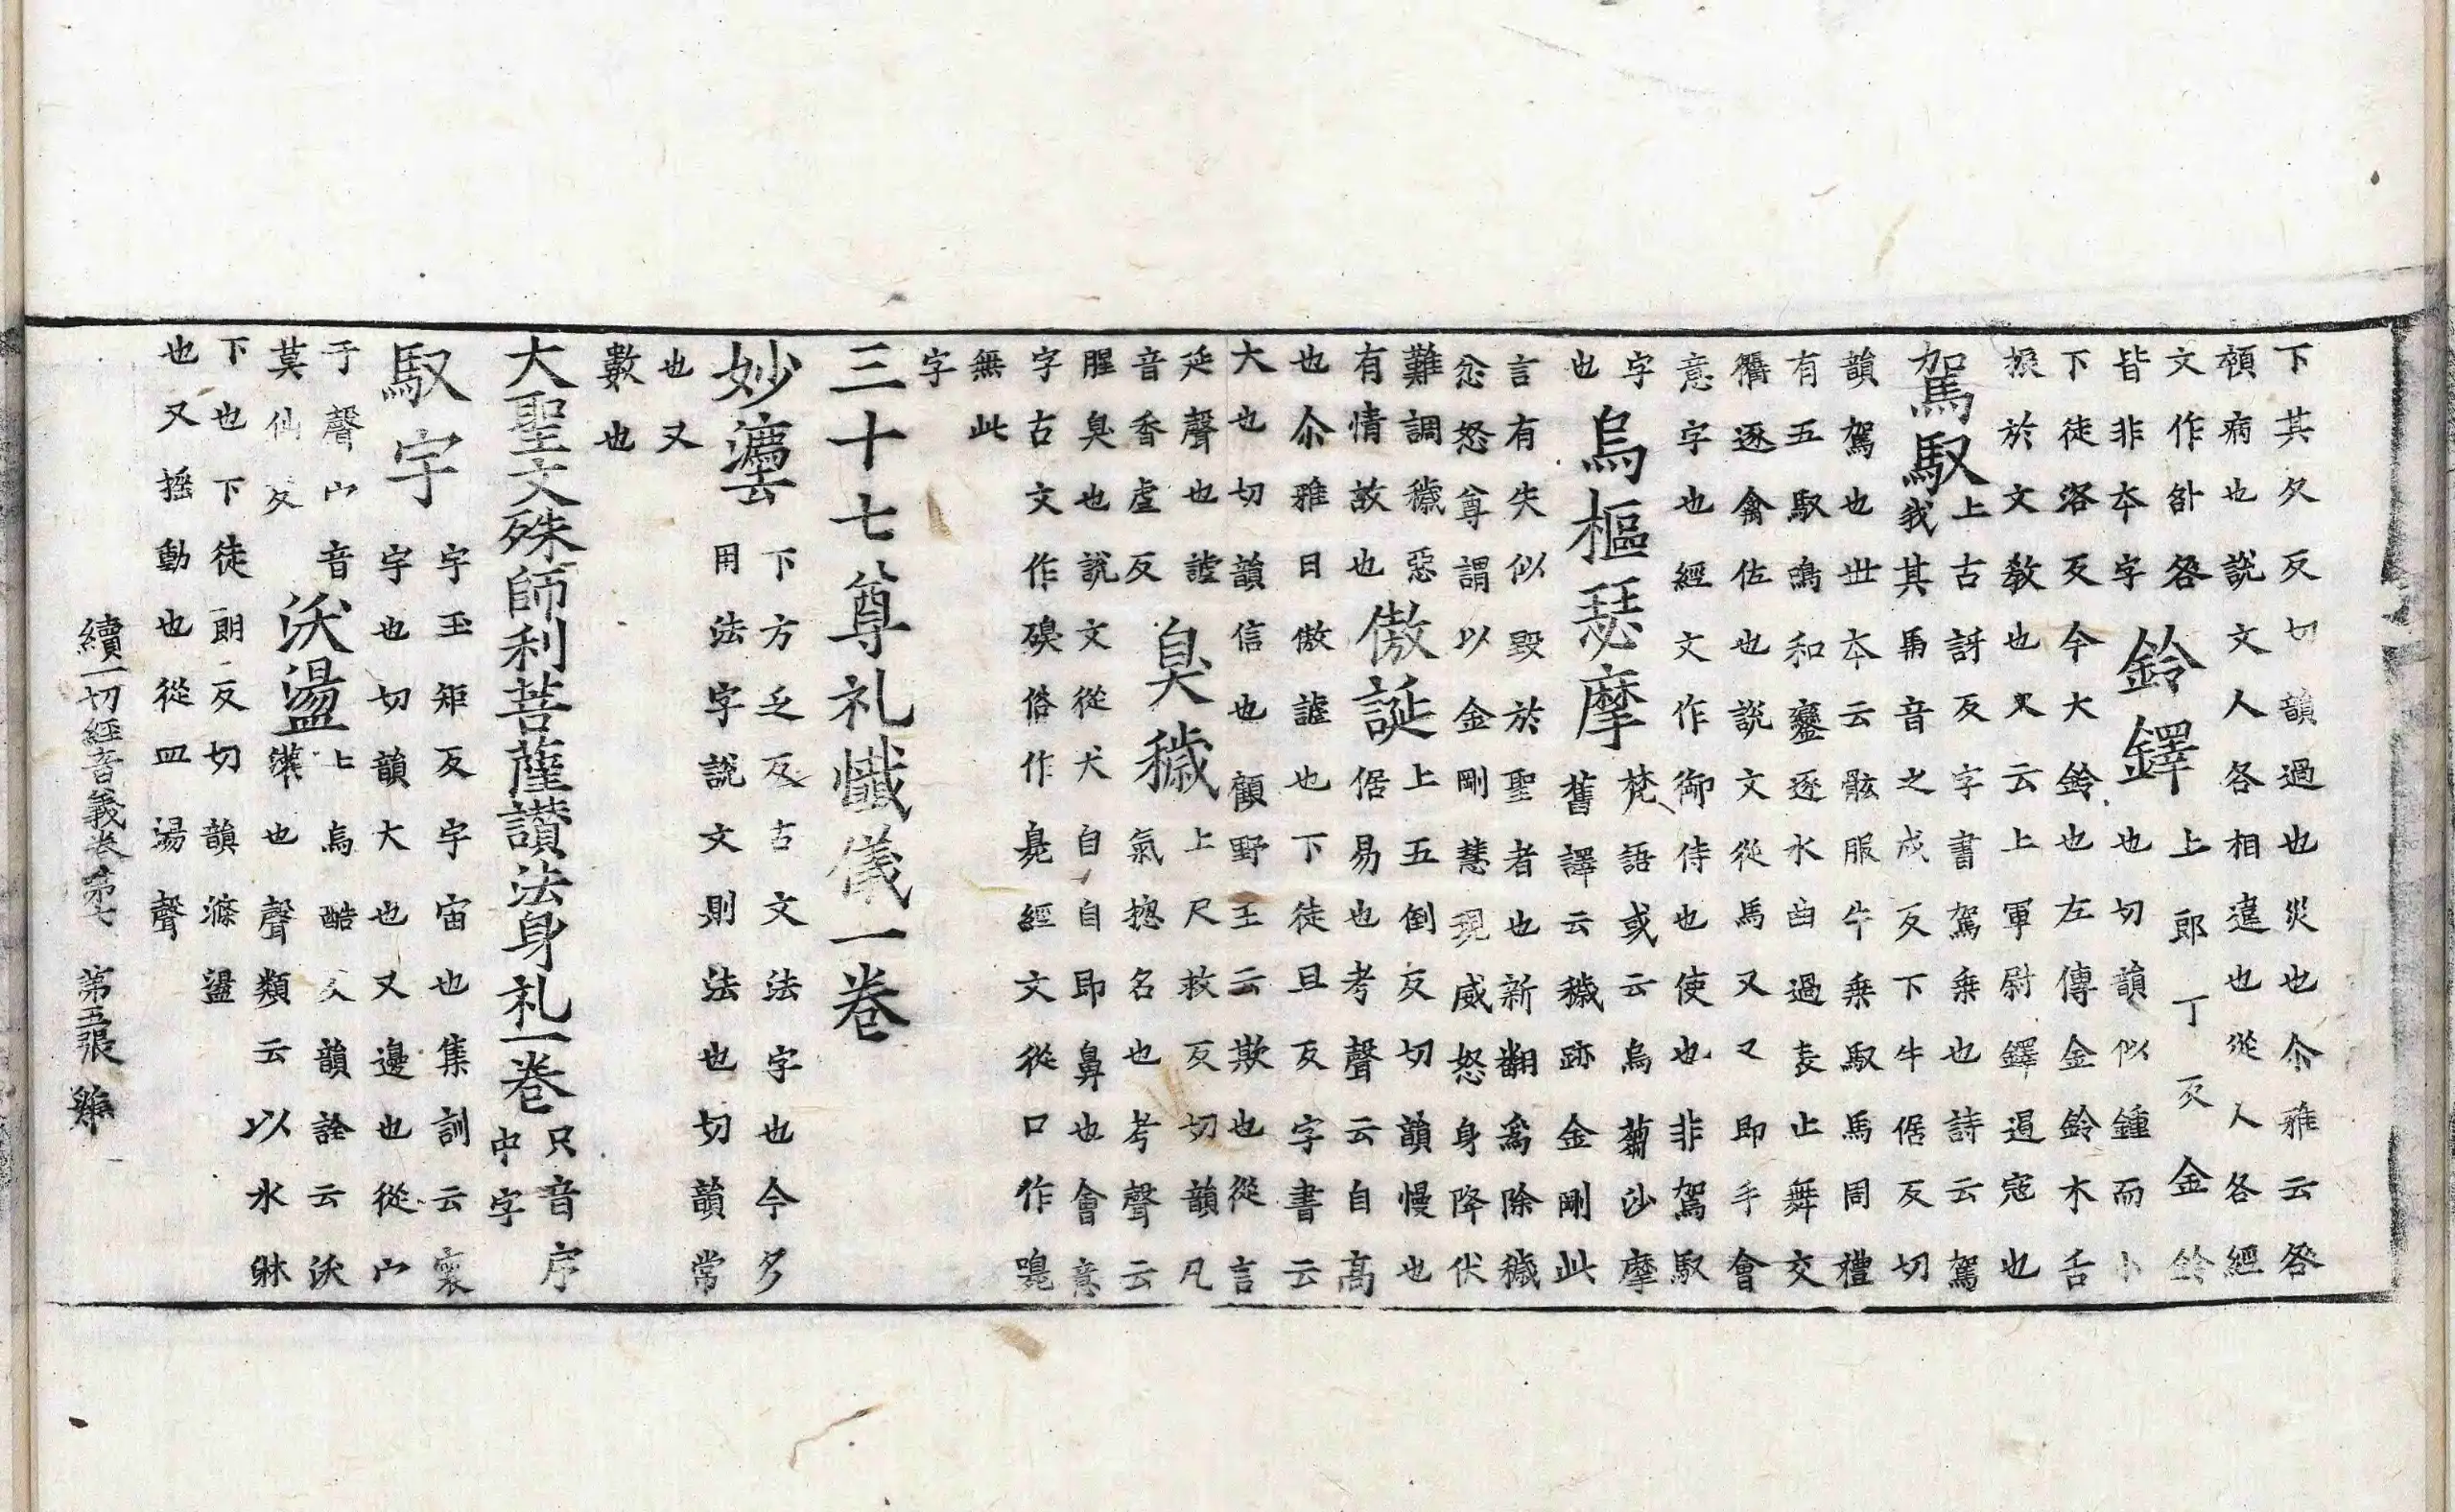 下其久反切韻過也災也尒雅云咎
頟病也說文人各相違也從人各經
文作㕯咎
皆非夲字
鈴鐸
上郎丁反金鈴
也切韻似鍾而小
下徒洛反今大鈴也左傳金鈴木舌
振於文教也又云上軍尉鐸遏寇也
駕馭
上古訝反字書駕乗也詩云駕
我其馬音之戍反下牛倨反切
韻駕也世夲云骸服牛乗馭馬周禮
有五馭鳴和鑾逐水曲過表止舞交
衢逐禽佐也說文從馬又又即手會
意字也經文作御侍也使也非駕馭
字
也
烏樞瑟摩
梵語或云烏蒭沙摩
舊譯云穢跡金剛此
言有失似毀於聖者也新翻爲除穢
忿怒尊謂以金剛慧現威怒身降伏
難調穢惡
有情故也
傲誕
上五倒反切韻慢也
倨易也考聲云自高
也尒雅曰傲謔也下徒旦反字書云
大也切韻信也顧野王云欺也從言
延聲也謔
音香虐反
臭穢
上尺救反切韻凡
氣揔名也考聲云
腥臭也說文從犬自自即鼻也會意
字古文作殠俗作臰經文從口作嗅
無此
字
三十七尊礼懺儀一卷
妙灋
下方乏反古文法字也今多
用法字說文則法也切韻常
也又
數也
大聖文殊師利菩薩讃法身礼一卷
只音序
中字
馭宇
宇玉矩反宇宙也集訓云寰
宇也切韻大也又邊也從宀
于聲宀音
莫仙反
沃盪
上烏酷反韻詮云沃
漑也聲類云以水淋
下也下徒朗反切韻滌盪
也又揺動也從皿湯聲
續一切經音義卷第七 第五張 雞